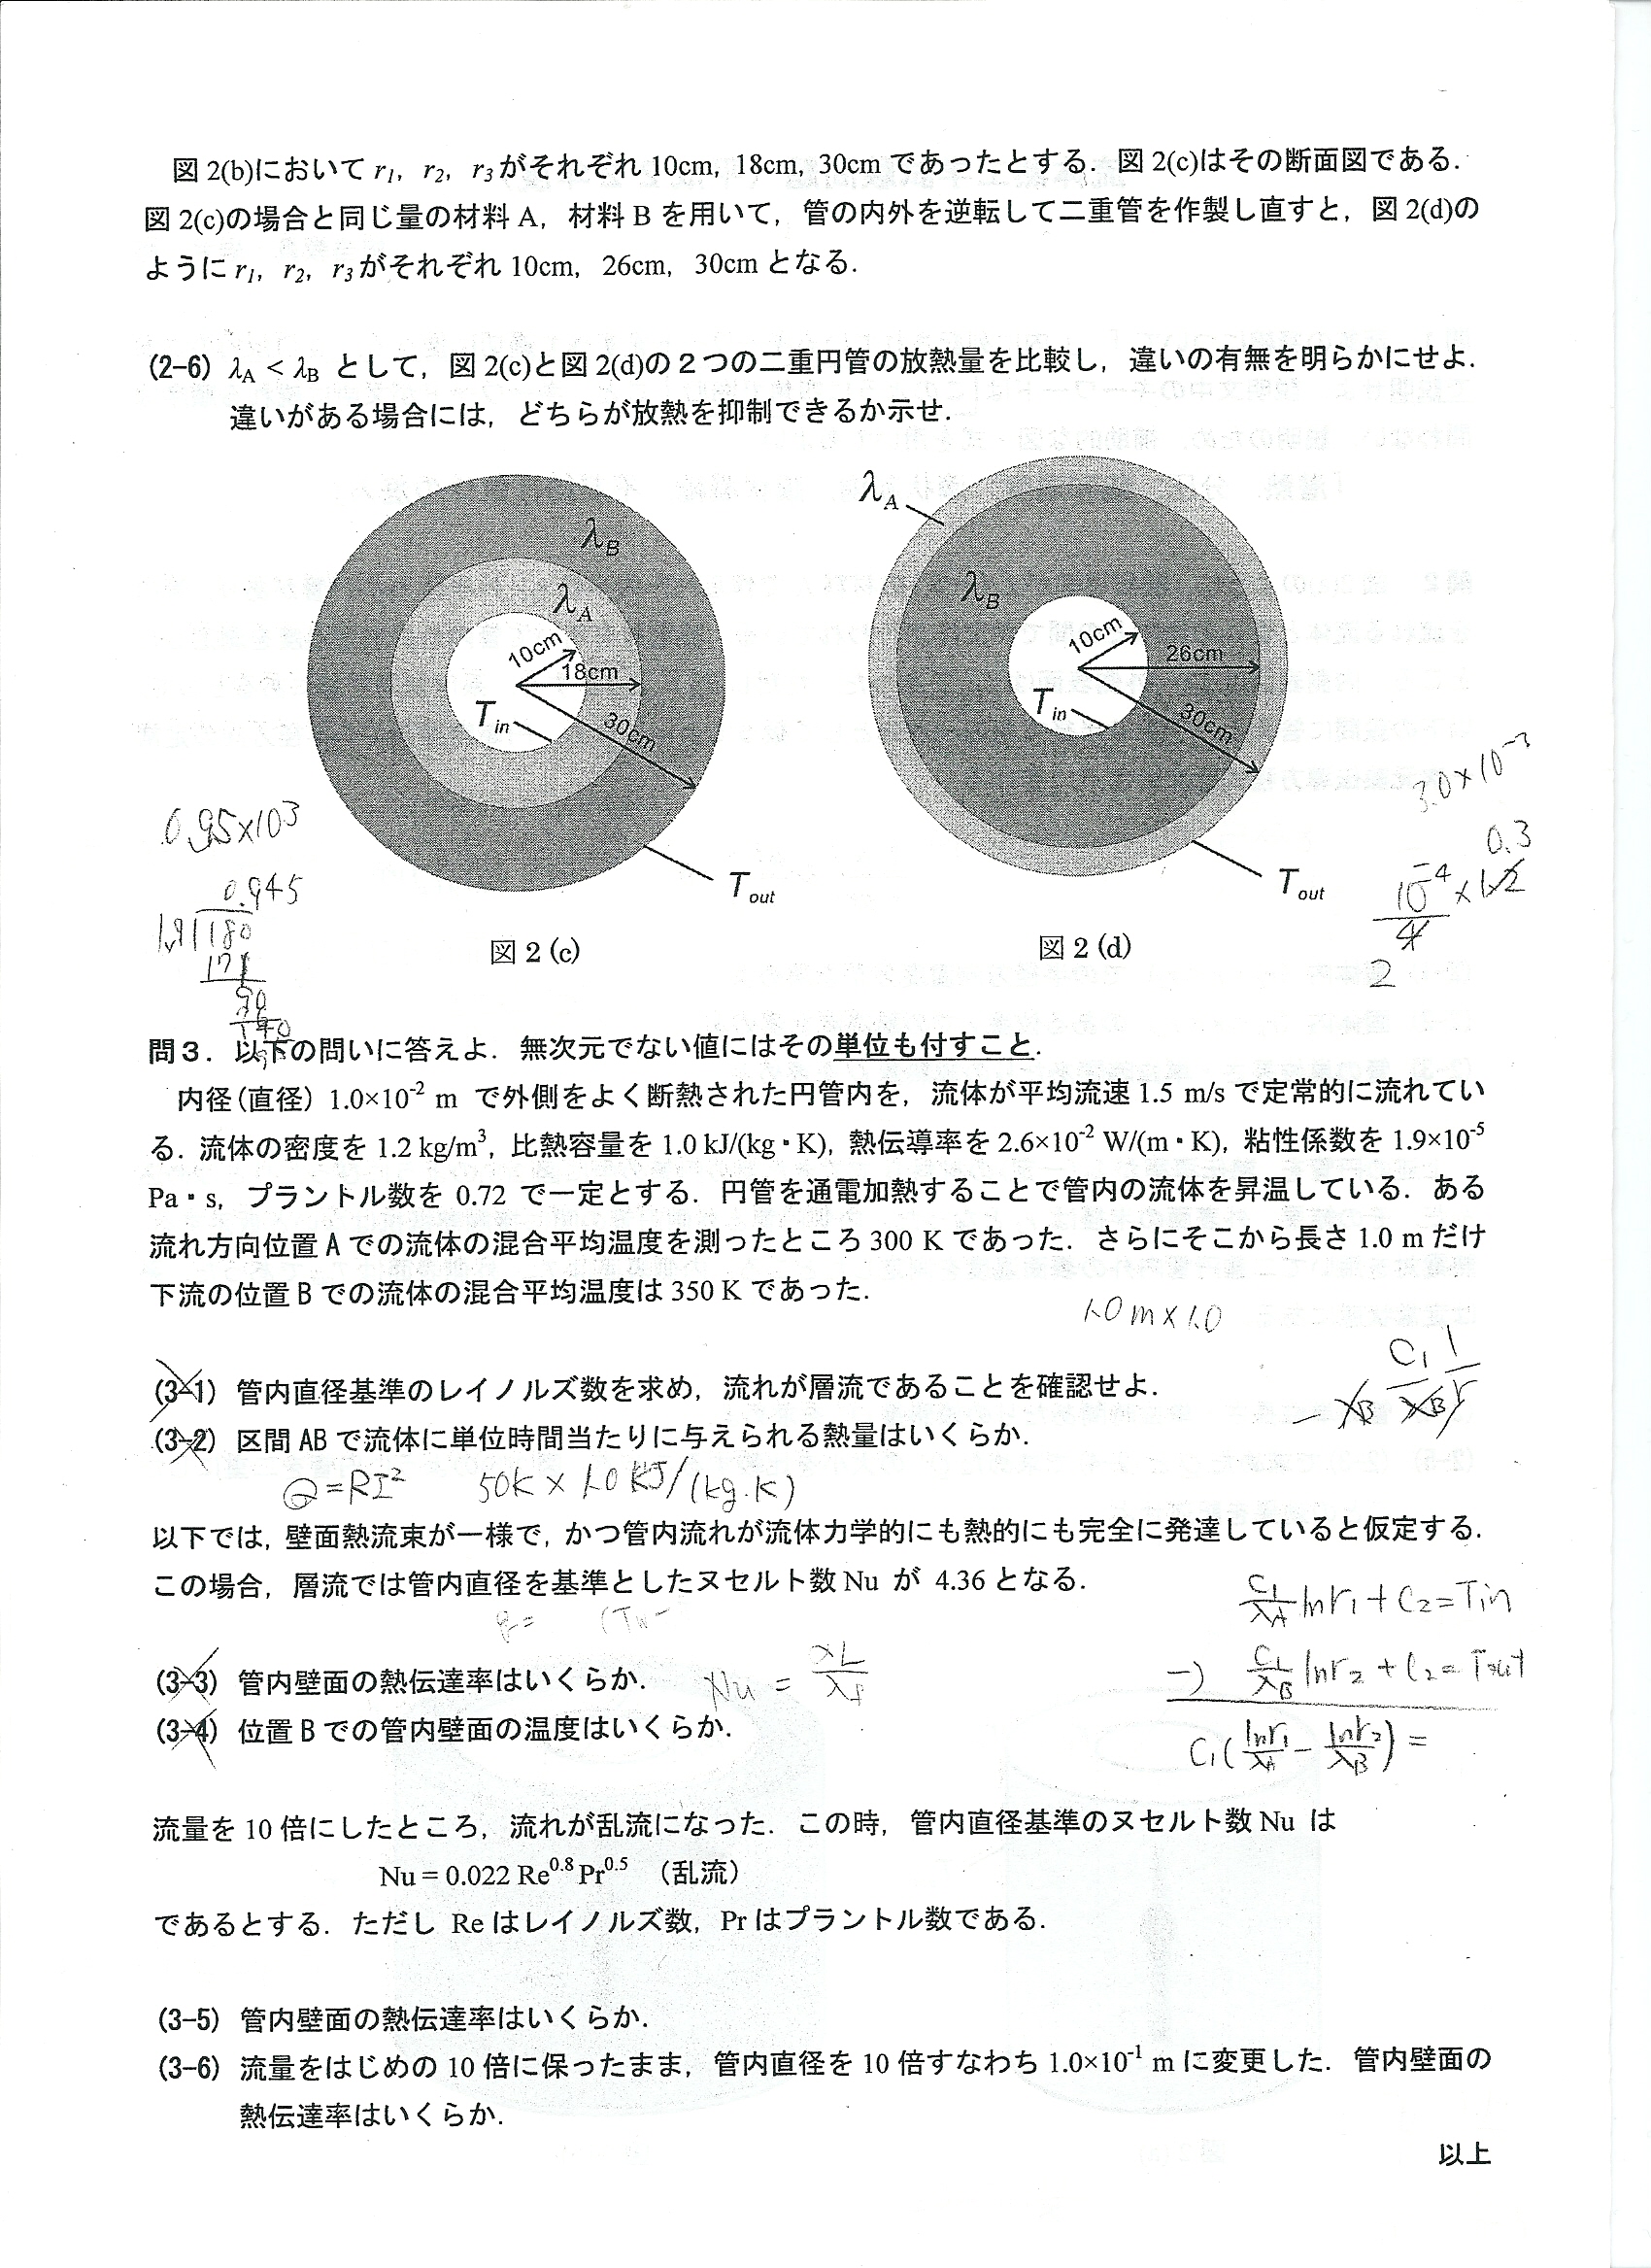 図 2(b)において r1, r2, r3がそれぞれ 10cm, 18cm, 30cm であったとする. 図 2(c)はその断面図である.
図 2(c)の場合と同じ量の材料 A, 材料 B を用いて, 管の内外を逆転して二重管を作製し直すと, 図 2(d)の
ように r1, r2, r3がそれぞれ 10cm, 26cm, 30cm となる.
(2-6) λA < λB として, 図 2(c)と図 2(d)の２つの二重円管の放熱量を比較し, 違いの有無を明らかにせよ.
違いがある場合には, どちらが放熱を抑制できるか示せ.
λB
λA
10cm
18cm
30cm
Tin
Tout
図 2 (c)
λA
λB
10cm
26cm
30cm
Tin
Tout
図 2 (d)
0.95×10³
0.945
1.9 180
171
90
3.0×10⁻³
0.3
10⁻⁴×1.2
4
2
問３. 以下の問いに答えよ. 無次元でない値にはその単位も付すこと.
内径(直径) 1.0×10⁻² m で外側をよく断熱された円管内を, 流体が平均流速 1.5 m/s で定常的に流れてい
る. 流体の密度を 1.2 kg/m³, 比熱容量を 1.0 kJ/(kg・K), 熱伝導率を 2.6×10⁻² W/(m・K), 粘性係数を 1.9×10⁻⁵
Pa・s, プラントル数を 0.72 で一定とする. 円管を通電加熱することで管内の流体を昇温している. ある
流れ方向位置 A での流体の混合平均温度を測ったところ 300 K であった. さらにそこから長さ 1.0 m だけ
下流の位置 B での流体の混合平均温度は 350 K であった.
1.0 m × 1.0
(3-1) 管内直径基準のレイノルズ数を求め, 流れが層流であることを確認せよ.
(3-2) 区間 AB で流体に単位時間当たりに与えられる熱量はいくらか.
− λB C1/λB 1/r
Q=RI² 50K × 1.0 KJ/(kg.K)
以下では, 壁面熱流束が一様で, かつ管内流れが流体力学的にも熱的にも完全に発達していると仮定する.
この場合, 層流では管内直径を基準としたヌセルト数 Nu が 4.36 となる.
q= (Tw−
C1/λA lnr1 + C2 = Tin
(3-3) 管内壁面の熱伝達率はいくらか.
−) C1/λB lnr2 + C2 = Tout
(3-4) 位置 B での管内壁面の温度はいくらか.
C1(lnr1/λA − lnr2/λB) =
流量を 10 倍にしたところ, 流れが乱流になった. この時, 管内直径基準のヌセルト数 Nu は
Nu = 0.022 Re^0.8 Pr^0.5 (乱流)
であるとする. ただし Re はレイノルズ数, Pr はプラントル数である.
(3-5) 管内壁面の熱伝達率はいくらか.
(3-6) 流量をはじめの 10 倍に保ったまま, 管内直径を 10 倍すなわち 1.0×10⁻¹ m に変更した. 管内壁面の
熱伝達率はいくらか.
以上